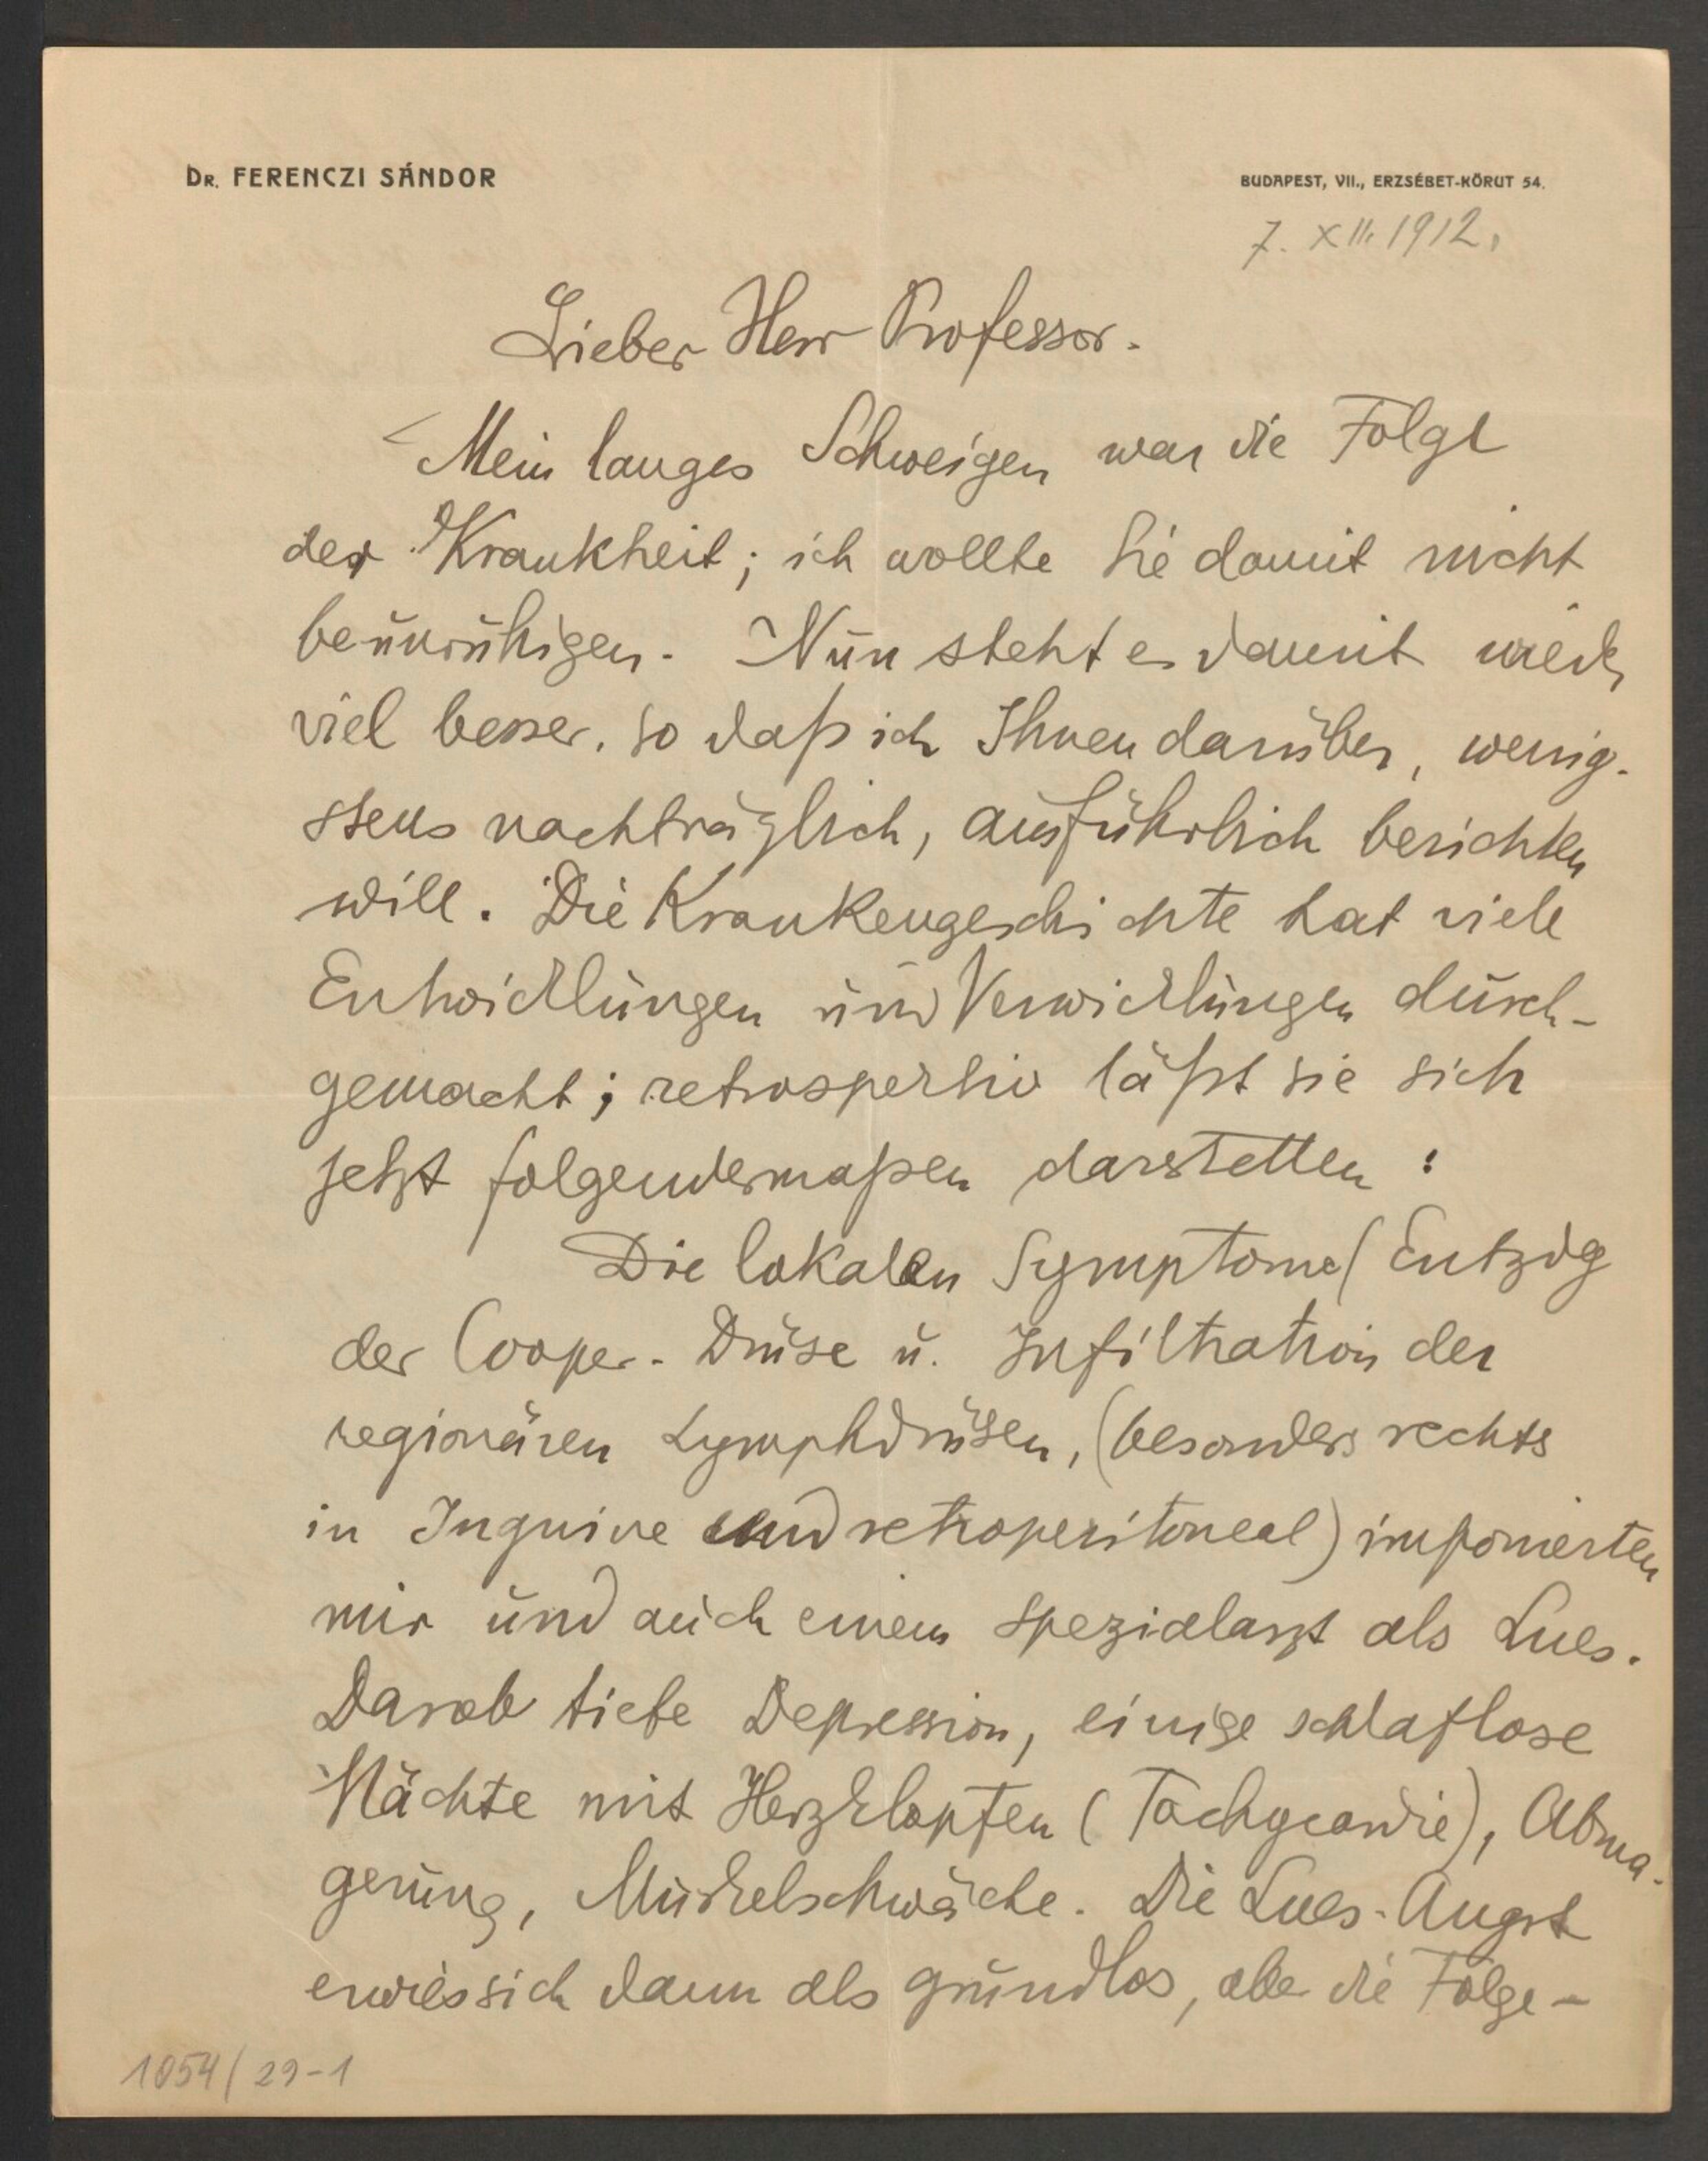 Dr. FERENCZI SÁNDOR
BUDAPEST, VII., ERZSÉBET-KÖRUT 54.
7. XII. 1912.
Lieber Herr Professor.
Mein langes Schweigen war die Folge
der Krankheit; ich wollte Sie damit nicht
beunruhigen. Nun steht es damit wieder
viel besser, so daß ich Ihnen darüber, wenig-
stens nachträglich, ausführlich berichten
will. Die Krankengeschichte hat viele
Entwicklungen und Verwicklungen durch-
gemacht; retrospektiv läßt sie sich
jetzt folgendermaßen darstellen:
Die lokalen Symptome (Entzdg
der Cooper-Drüse u. Infiltration der
regionären Lymphdrüsen, (besonders rechts
in Inguine und retroperitoneal) imponierten
mir und auch einem Spezialarzt als Lues.
Darob tiefe Depression, einige schlaflose
Nächte mit Herzklopfen (Tachycardie), Abma-
gerung, Muskelschwäche. Die Lues-Angst
erwies sich dann als grundlos, aber die Folge-
1054/29-1